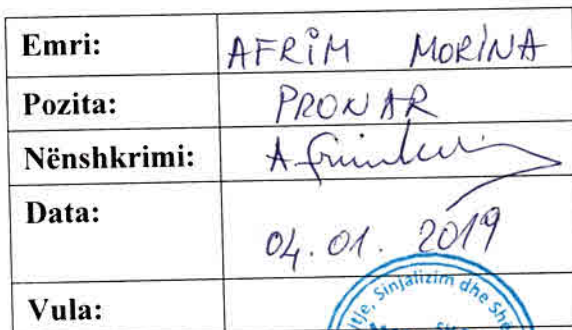 Emri: AFRIM MORINA
Pozita: PRONAR
Nënshkrimi:
Data: 04.01.2019
Vula:
Sinjalizim dhe